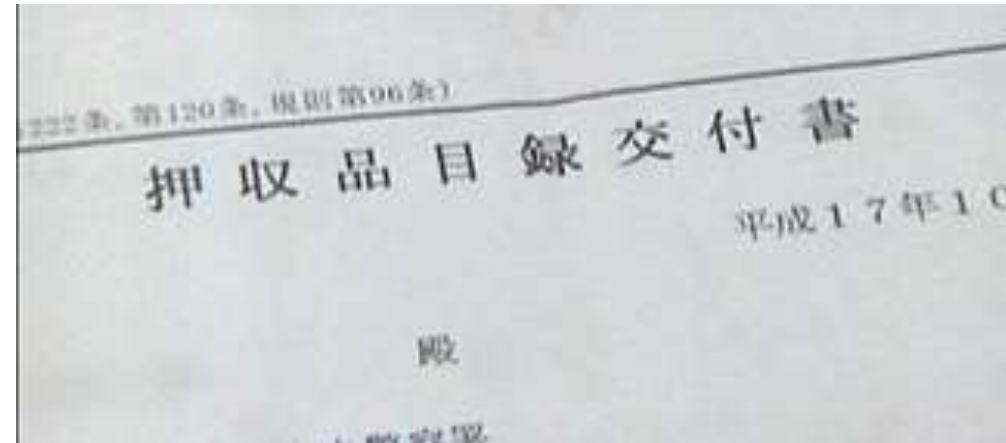 222条, 第120条, 規則第96条)
押収品目録交付書
平成17年10
殿
警察署